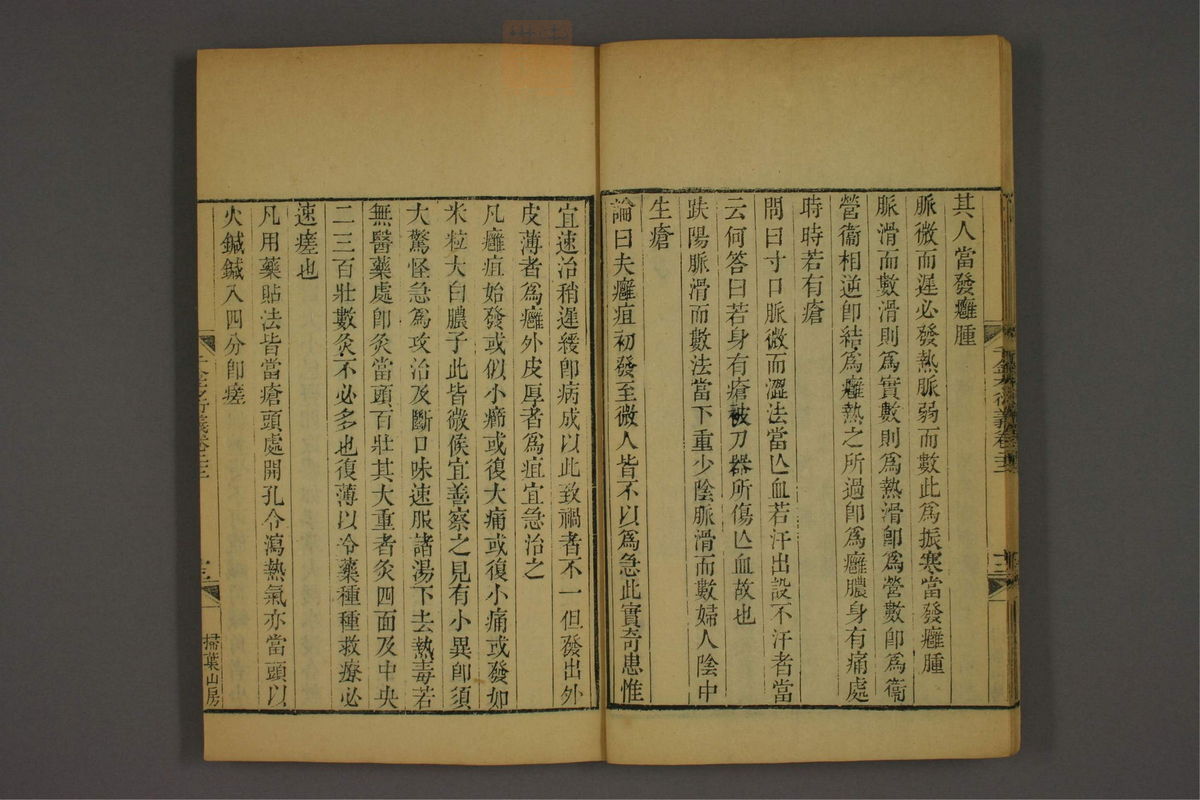 其人當發癰腫
脈微而遲必發熱脈弱而數此爲振寒當發癰腫
脈滑而數滑則爲實數則爲熱滑卽爲營數卽爲衞
營衞相逆卽結爲癰熱之所過卽爲癰膿身有痛處
時時若有瘡
問曰寸口脈微而澀法當亾血若汗出設不汗者當
云何答曰若身有瘡被刀器所傷亾血故也
趺陽脈滑而數法當下重少陰脈滑而數婦人陰中
生瘡
論曰夫癰疽初發至微人皆不以爲急此實奇患惟
宜速治稍遲緩卽病成以此致禍者不一但發出外
皮薄者爲癰外皮厚者爲疽宜急治之
凡癰疽始發或似小癤或復大痛或復小痛或發如
米粒大白膿子此皆微候宜善察之見有小異卽須
大驚怪急爲攻治及斷口味速服諸湯下去熱毒若
無醫藥處卽灸當頭百壯其大重者灸四面及中央
二三百壯數灸不必多也復薄以冷藥種種救療必
速瘥也
凡用藥貼法皆當瘡頭處開孔令瀉熱氣亦當頭以
火鍼鍼入四分卽瘥
掃葉山房